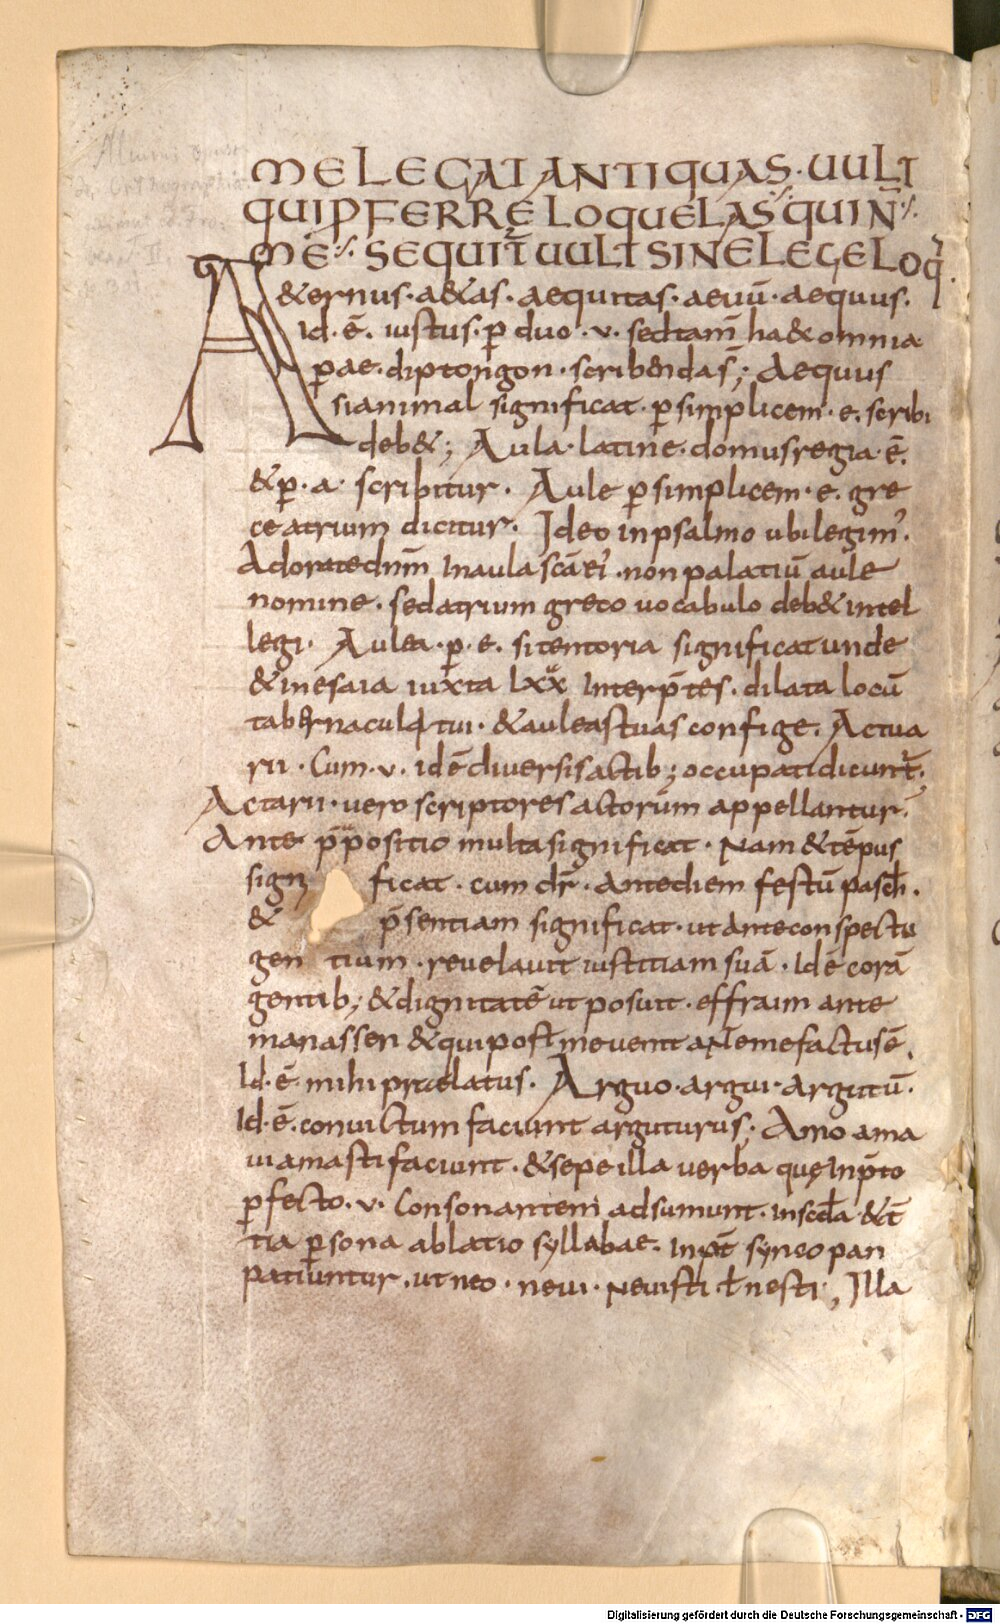 ME LEGAT ANTIQUAS · UULT
QUI P̲FERRE LOQUELAS QUI N̄
ME SEQUIT̄ UULT SINE LEGE LOQ̄
A&ernus · a&as · aequitas · aeuū · aequus ·
Id · ē · iustus · p̲ duo · v · sed tam̄ ha&c omnia
p̲ ae · diptongon · scribenda s̄; Aequus
si animal significat · p̲ simplicem · e · scribi
deb&; Aula · latine · domus regia · ē ·
& p̲ · a · scribitur · Aule p̲ simplicem · e · gre
ce atrium dicitur · Ideo in psalmo ubi legim᾿ ·
Adorate dn̄m in aula sc̄a ei᾿ · non palatiū aule
nomine · sed atrium greco uocabulo deb& intel
legi · Aulea · p̲ · e · si tentoria significat unde
& in esaia iuxta lxx interp̄tes · dilata locū
tabernaculi tui · & auleas tuas confige · Actua
rii · Cum · v · id ē diuersis actib; occupati dicunt̄ ·
Actarii · uero scriptores actorum appellantur ·
Ante p̄positio multa significat · Nam & tēpus
signi ficat · cum dr̄ · Ante diem festū pasch̄ ·
& p̄sentiam significat · ut ante conspectū
gen tium · reuelauit iustitiam suā · Id ē corā
gentib; & dignitatē ut posuit · effraim ante
manassen & qui post me uenit ante me factus ē ·
Id · ē · mihi praelatus · Arguo · argui · argutū ·
Id · ē · conuictum faciunt arguturus; Amo ama
ui amasti faciunt · & sepe illa uerba quę in p̄to
p̲fecto · v · consonantem adsumunt · in scd̄a & t̄
tia p̲sona ablatio syllabae · in p̄t syncopan
patiuntur · ut neo · neui · Neuisti · ł nesti; Illa
Digitalisierung gefördert durch die Deutsche Forschungsgemeinschaft - DFG